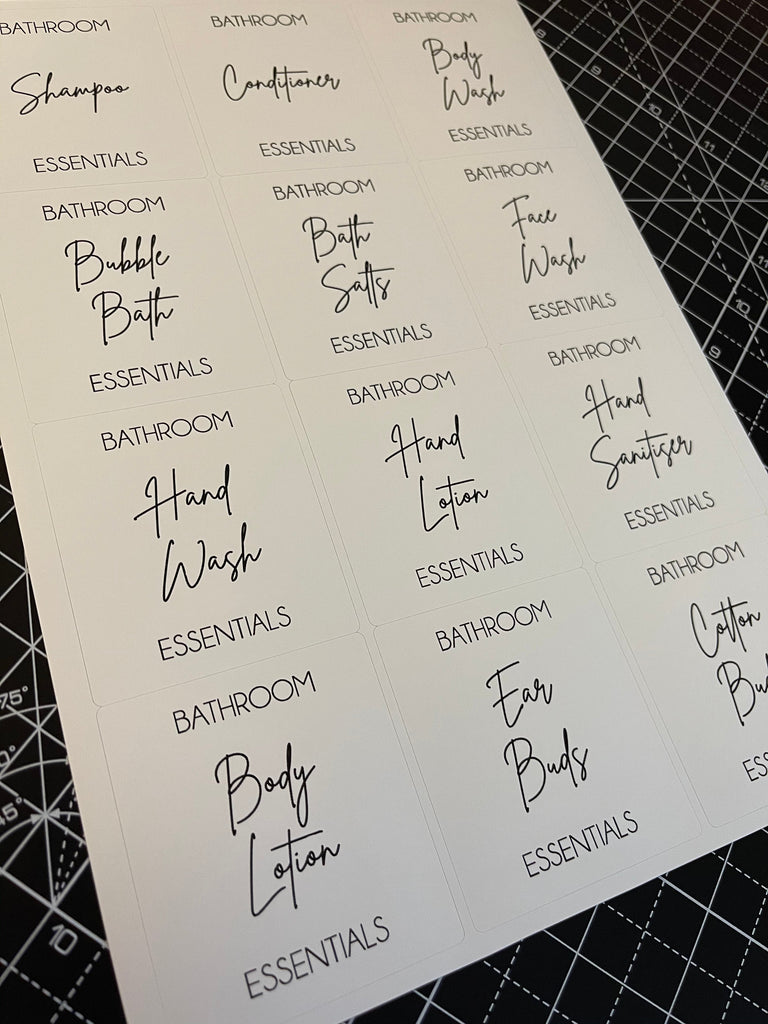 BATHROOM
Shampoo
ESSENTIALS
BATHROOM
Conditioner
ESSENTIALS
BATHROOM
Body
Wash
ESSENTIALS
BATHROOM
Bubble
Bath
ESSENTIALS
BATHROOM
Bath
Salts
ESSENTIALS
BATHROOM
Face
Wash
ESSENTIALS
BATHROOM
Hand
Wash
ESSENTIALS
BATHROOM
Hand
Lotion
ESSENTIALS
BATHROOM
Hand
Sanitiser
ESSENTIALS
BATHROOM
Body
Lotion
ESSENTIALS
BATHROOM
Ear
Buds
ESSENTIALS
BATHROOM
Cotton
10
9
10
11
10
9
75°
45°